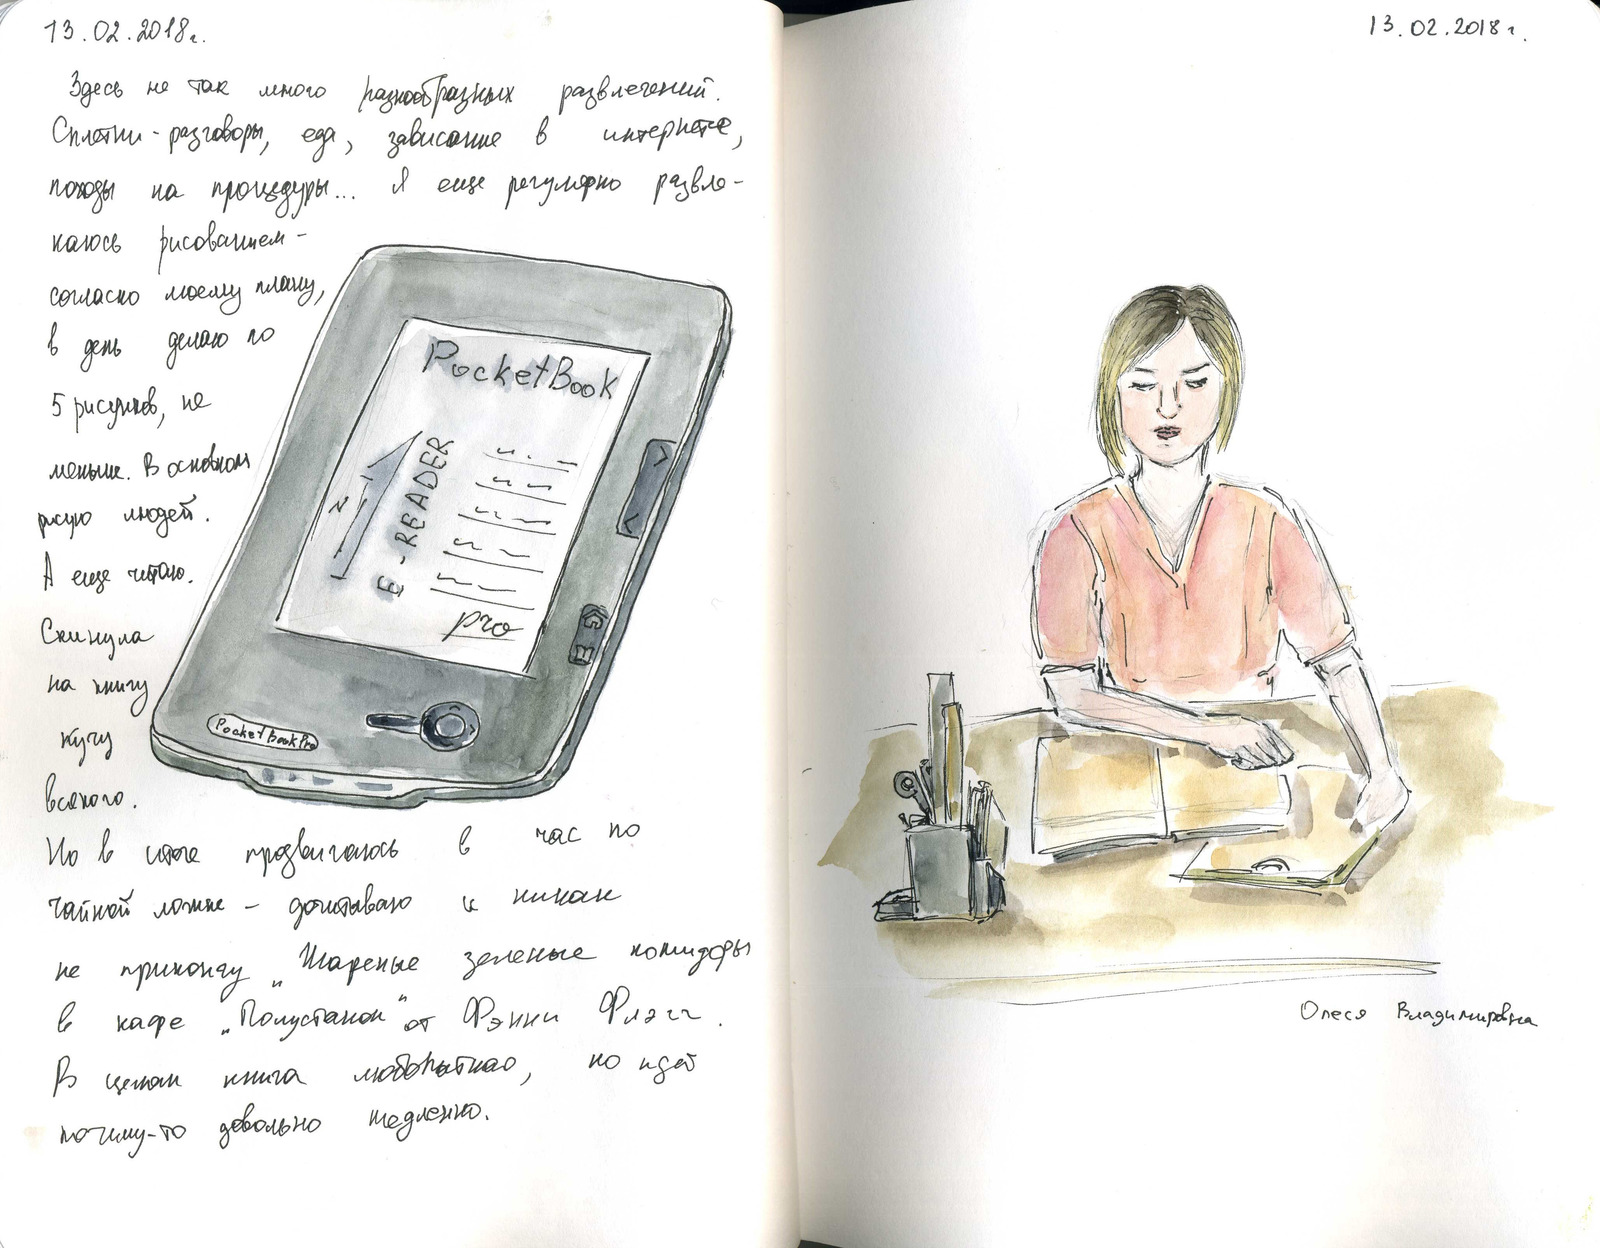 13.02.2018г.
Здесь не так много разнообразных развлечений.
Сплетни-разговоры, еда, зависание в интернете,
походы на процедуры... Я еще регулярно развле-
каюсь рисованием -
согласно моему плану,
в день делаю по
5 рисунков, не
меньше. В основном
рисую людей.
А еще читаю.
Скинула
на книгу
кучу
всякого.
Но в итоге продвигаюсь в час по
чайной ложке - дочитываю и никак
не прикончу „Жареные зеленые помидоры
в кафе „Полустанок" от Фэнни Флэгг.
В целом книга любопытная, но идет
почему-то довольно медленно.
PocketBook
E-READER
pro
PocketBookPro
13.02.2018г.
Олеся Владимировна